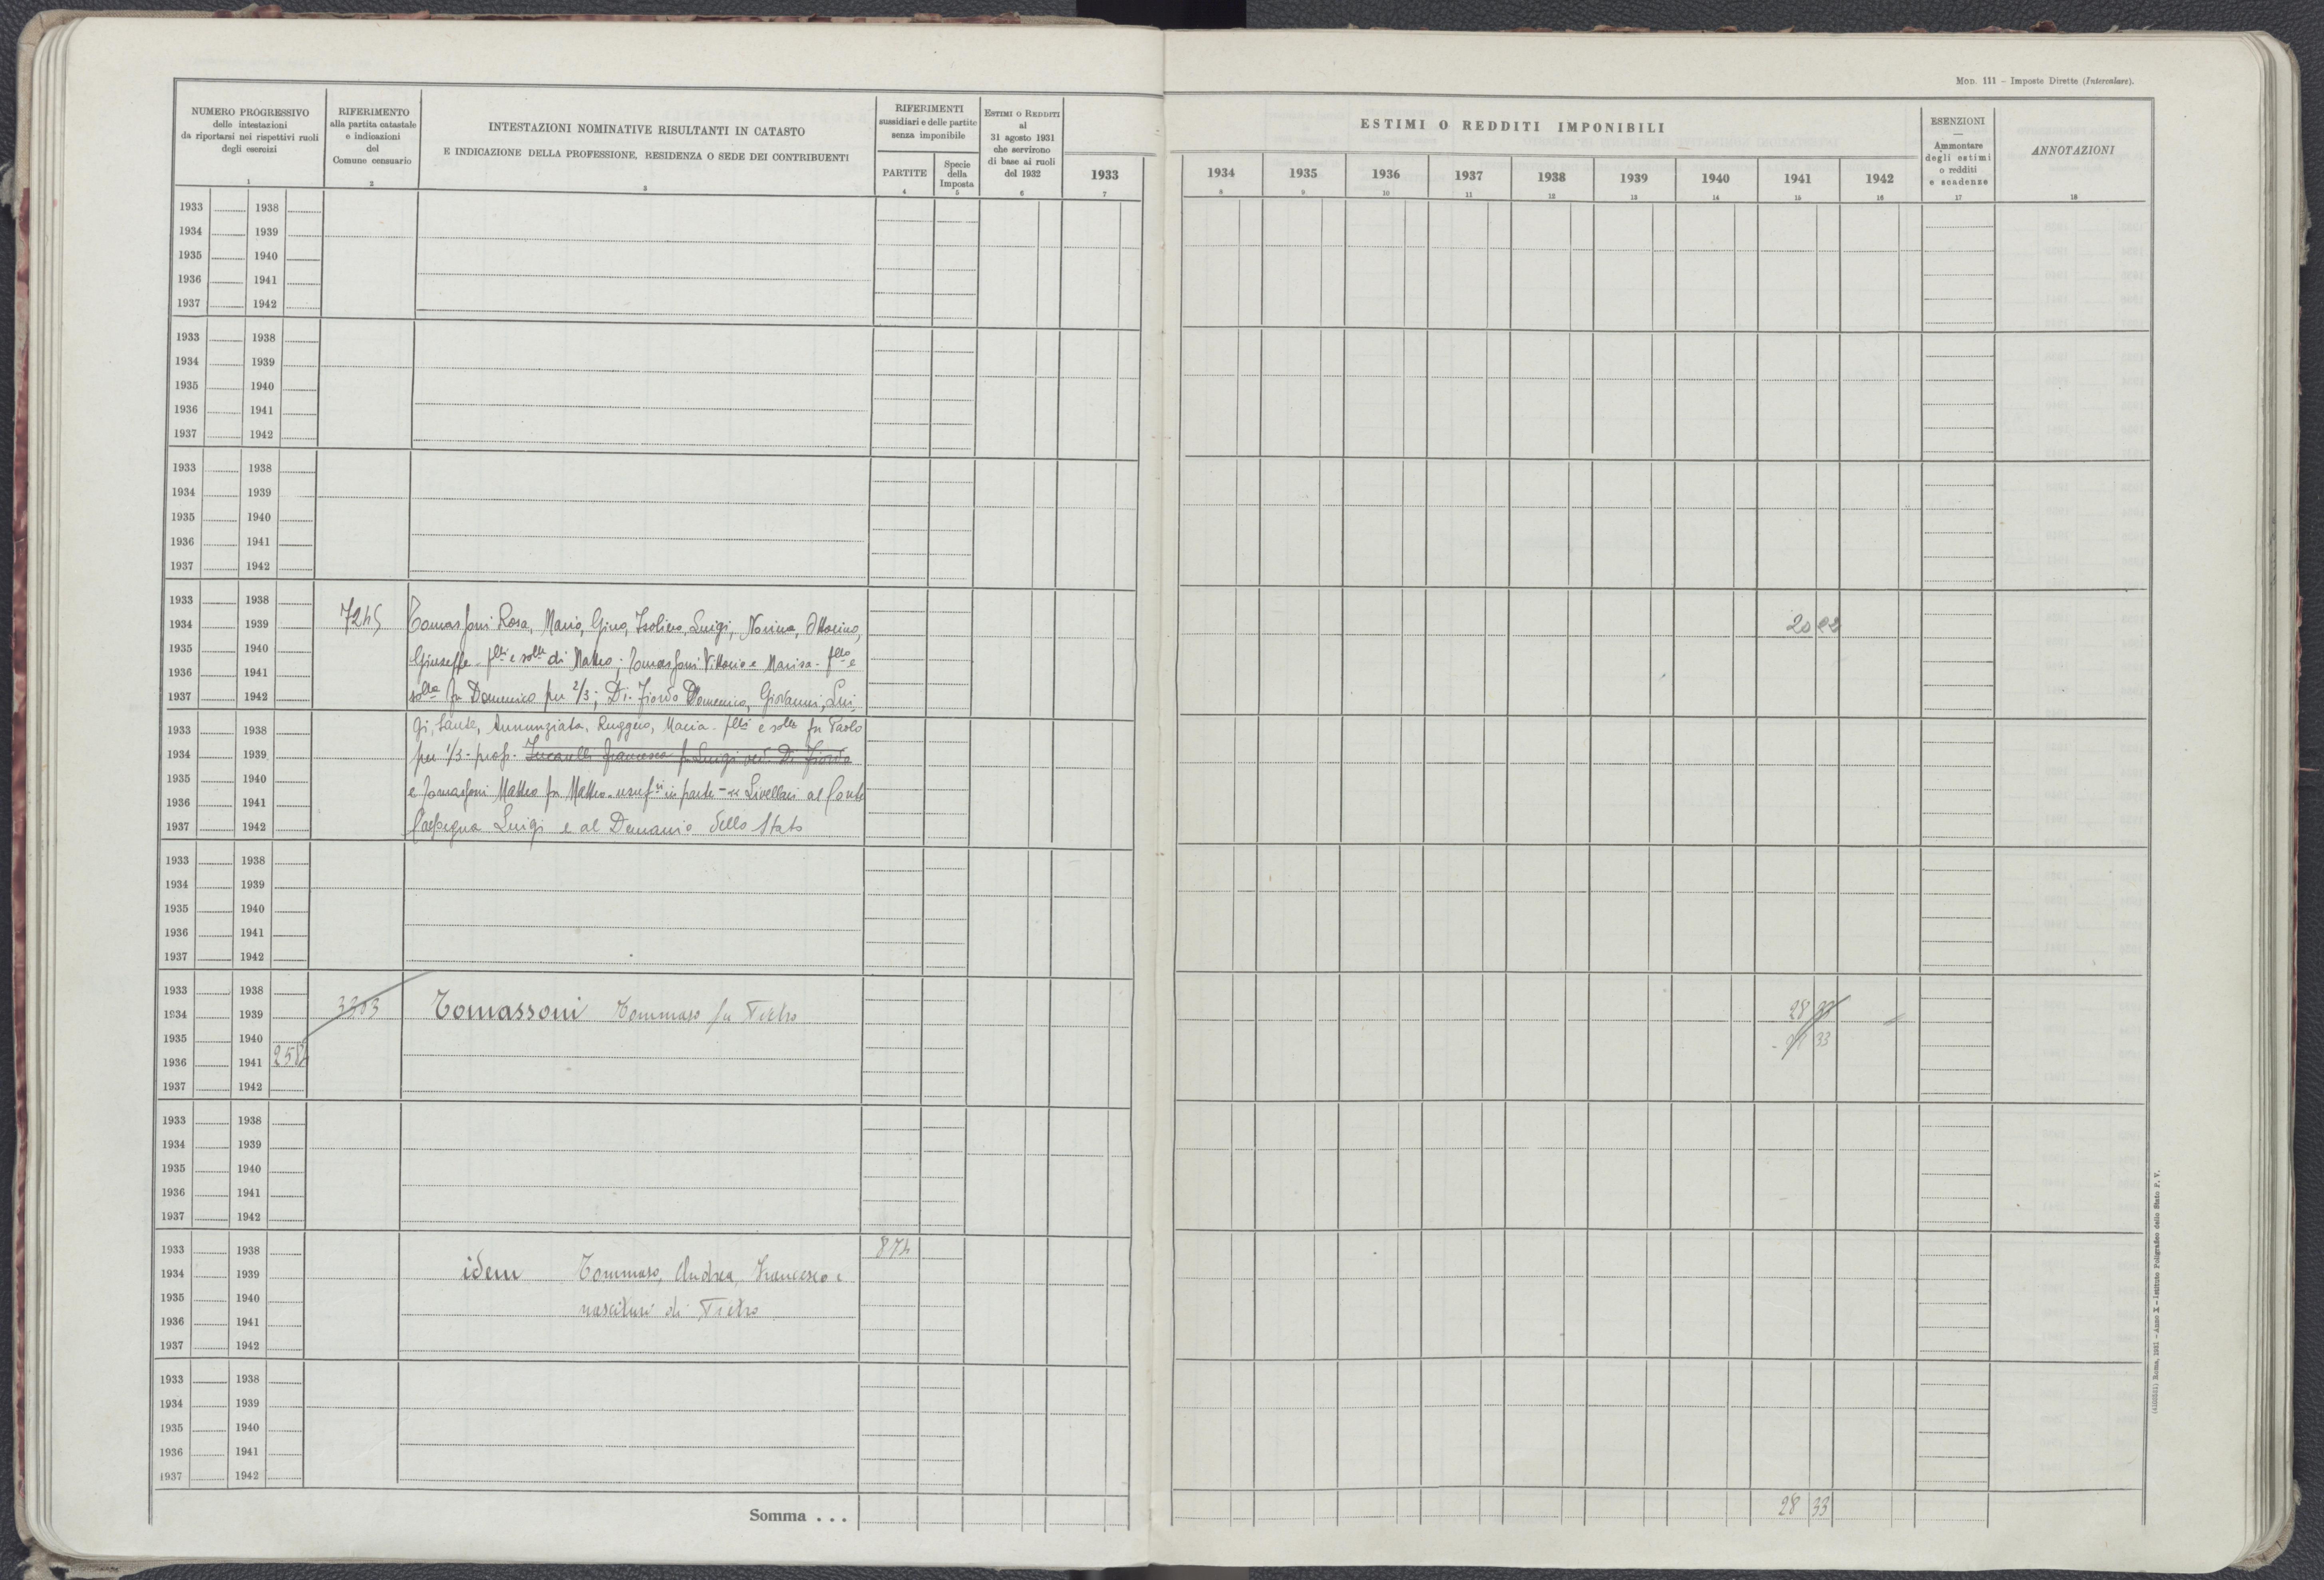 MOD. 111 – Imposte Dirette (Intercalare).
NUMERO PROGRESSIVO
delle intestazioni
da riportarsi nei rispettivi ruoli
degli esercizi
1
RIFERIMENTO
alla partita catastale
e indicazioni
del
Comune censuario
2
INTESTAZIONI NOMINATIVE RISULTANTI IN CATASTO
E INDICAZIONE DELLA PROFESSIONE, RESIDENZA O SEDE DEI CONTRIBUENTI
3
RIFERIMENTI
sussidiari e delle partite
senza imponibile
PARTITE
4
Specie
della
Imposta
5
ESTIMI O REDDITI
al
31 agosto 1931
che servirono
di base ai ruoli
del 1932
6
1933
7
ESTIMI O REDDITI IMPONIBILI
1934 1935 1936 1937 1938 1939 1940 1941 1942
8 9 10 11 12 13 14 15 16
ESENZIONI
—
Ammontare
degli estimi
o redditi
e scadenze
17
ANNOTAZIONI
18
1933 1938
1934 1939
1935 1940
1936 1941
1937 1942
1933 1938
1934 1939
1935 1940
1936 1941
1937 1942
1933 1938
1934 1939
1935 1940
1936 1941
1937 1942
1933 1938
1934 1939 7245 Tomassoni Rosa, Mario, Gino, Isolino, Luigi, Norina, Ottorino,
1935 1940 Giuseppe - flli e slle di Matteo; Tomassoni Vittorio e Marisa - fllo e
1936 1941
1937 1942 slla fu Domenico per 2/3; Di Fiordo Domenico, Giovanni, Lui-
1933 1938 gi, Sante, Annunziata, Ruggero, Maria - flli e slle fu Paolo
1934 1939 per 1/3 - prop. Francesca fu Luigi ved. Di Fiordo
1935 1940 e Tomassoni Matteo fu Matteo - usuf in parte - Livellari al Conte
1936 1941
1937 1942 Carpegna Luigi e al Demanio dello Stato
1933 1938
1934 1939
1935 1940
1936 1941
1937 1942
1933 1938
1934 1939 3303 Tomassoni Tommaso fu Pietro 28
1935 1940 33
1936 1941 2584
1937 1942
1933 1938
1934 1939
1935 1940
1936 1941
1937 1942
1933 1938 874
1934 1939 idem Tommaso, Andrea, Francesco e
1935 1940 nascituri di Pietro
1936 1941
1937 1942
1933 1938
1934 1939
1935 1940
1936 1941
1937 1942
Somma . . . 28 33
(4100521) Roma, 1931 – Anno X – Istituto Poligrafico dello Stato P. V.